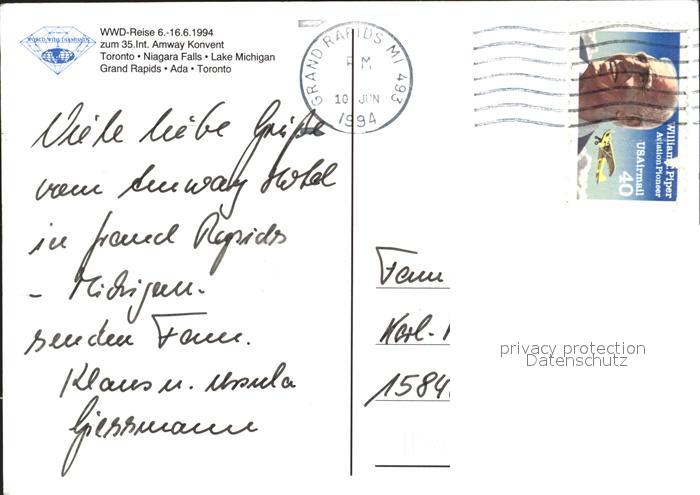 WORLD WIDE DIAMONDS
WWD-Reise 6.-16.6.1994
zum 35.Int. Amway Konvent
Toronto • Niagara Falls • Lake Michigan
Grand Rapids • Ada • Toronto
GRAND RAPIDS MI 493
PM
10 JUN
1994
William T. Piper
Aviation Pioneer
USAirmail
40
Viele liebe Grüße
vom Amway Hotel
in Grand Rapids
- Michigan.
senden Fam.
Klaus u. Ursula
Giessmann
Fam
Karl-
1584
privacy protection
Datenschutz